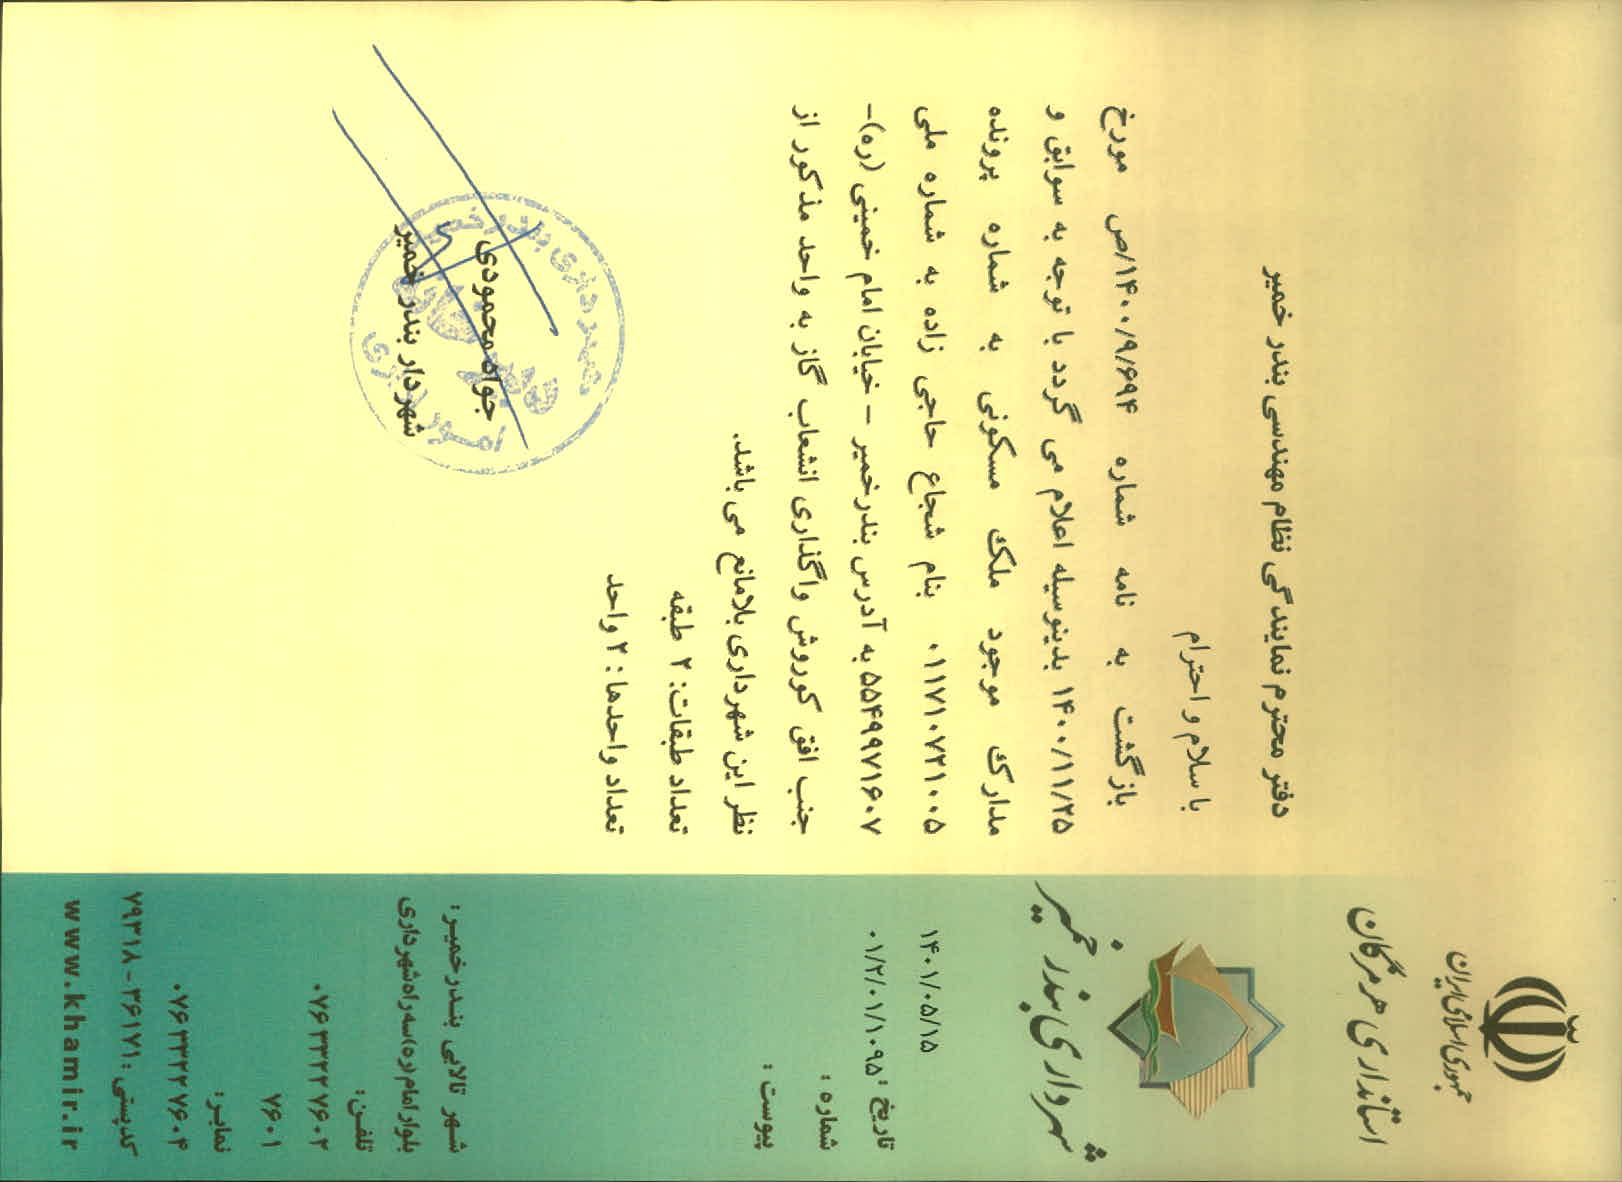 جمهوری اسلامی ایران
استانداری هرمزگان
شهرداری بندر خمیر
۱۴۰۱/۰۵/۱۵
تاریخ :
۰۱/۲/۰۱/۱۰۹۵
شماره :
پیوست :
شهر تالابی بندرخمیر :
بلوار امام (ره) سه راه شهرداری
تلفن:
۰۷۶۳۳۲۲۷۶۰۲
۷۶۰۱
نمابر:
۰۷۶۳۳۲۲۷۶۰۴
کدپستی : ۳۶۱۷۱ - ۷۹۳۱۸
www.khamir.ir
دفتر محترم نمایندگی نظام مهندسی بندر خمیر
با سلام و احترام
بازگشت به نامه شماره ۱۴۰۰/۹/۶۹۴/ص مورخ
۱۴۰۰/۱۱/۲۵ بدینوسیله اعلام می گردد با توجه به سوابق و
مدارک موجود ملک مسکونی به شماره پرونده
۰۱۱۷۱۰۷۲۱۰۰۵ بنام شجاع حاجی زاده به شماره ملی
۵۵۴۹۹۷۱۶۰۷ به آدرس بندرخمیر - خیابان امام خمینی (ره)-
جنب افق کوروش واگذاری انشعاب گاز به واحد مذکور از
نظر این شهرداری بلامانع می باشد.
تعداد طبقات: ۲ طبقه
تعداد واحدها : ۲ واحد
جواد محمودی
شهردار بندر خمیر
شهرداری بندر خمیر
امور اداری